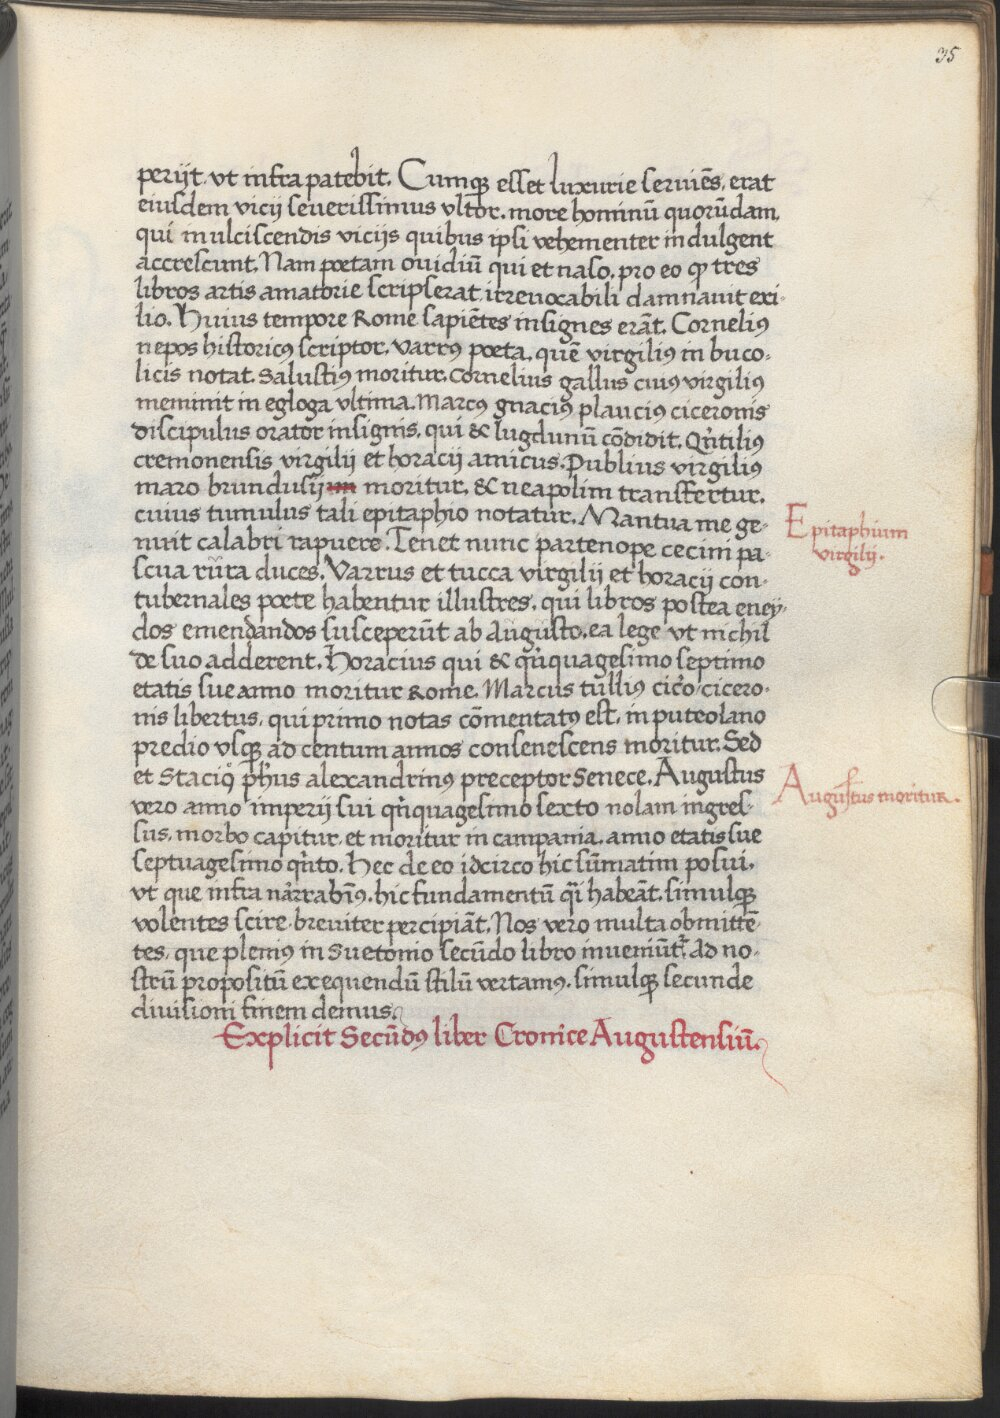 35
perijt. vt infra patebit. Cumqꝫ esset luxurie seruiēs. erat
eiusdem vicij seuerissimus vltor. more hominū quorūdam,
qui in ulciscendis vicijs quibus ipsi vehementer indulgent
accrescunt. Nam poetam ouidiū qui et naso. pro eo ꝙ tres
libros artis amatorie scripserat irreuocabili damnauit exi-
lio. Huius tempore Rome sapiētes insignes erāt. Corneliꝰ
nepos historicꝰ scriptor. varrꝰ poeta, quē virgiliꝰ in buco-
licis notat. Salustiꝰ moritur. Cornelius gallus cuiꝰ virgiliꝰ
meminit in egloga vltima. Marcꝰ gnaciꝰ plauciꝰ ciceronis
discipulus orator insignis. qui & lugdunū cōdidit. Qn̄tiliꝰ
cremonensis virgilij et horacij amicus. Publius virgiliꝰ
maro brundusij moritur. & neapolim transfertur.
cuius tumulus tali epitaphio notatur. Mantua me ge-
nuit calabri rapuere. Tenet nunc partenope cecini pa-
scua rūra duces. Varrus et tucca virgilij et horacij con-
tubernales poete habentur illustres. qui libros postea eney-
dos emendandos susceperūt ab Augusto. ea lege vt nichil
de suo adderent. Horacius qui & qn̄quagesimo septimo
etatis sue anno moritur Rome. Marcus tullius cic̄o cicero-
nis libertus. qui primo notas cōmentatꝰ est. in puteolano
predio vsqꝫ ad centum annos consenescens moritur. Sed
et Staciꝰ ph̄us alexandrinꝰ preceptor Senece. Augustus
vero anno imperij sui qn̄quagesimo sexto nolam ingres-
sus. morbo capitur. et moritur in campania. anno etatis sue
septuagesimo qn̄to. Hec de eo idcirco hic sūmatim posui.
vt que infra narrabīꝰ. hic fundamentū q̄i habeāt. simulqꝫ
volentes scire. breuiter percipiāt. Nos vero multa obmittē-
tes, que pleniꝰ in Suetonio secūdo libro inueniūtᷣ. ad no-
strū propositū exequendū stilū vertamꝰ. simulqꝫ secunde
diuisioni finem demus.
Explicit Secūdꝰ liber Cronice Augustensiū.
Epitaphium
virgilij.
Augustus moritur.